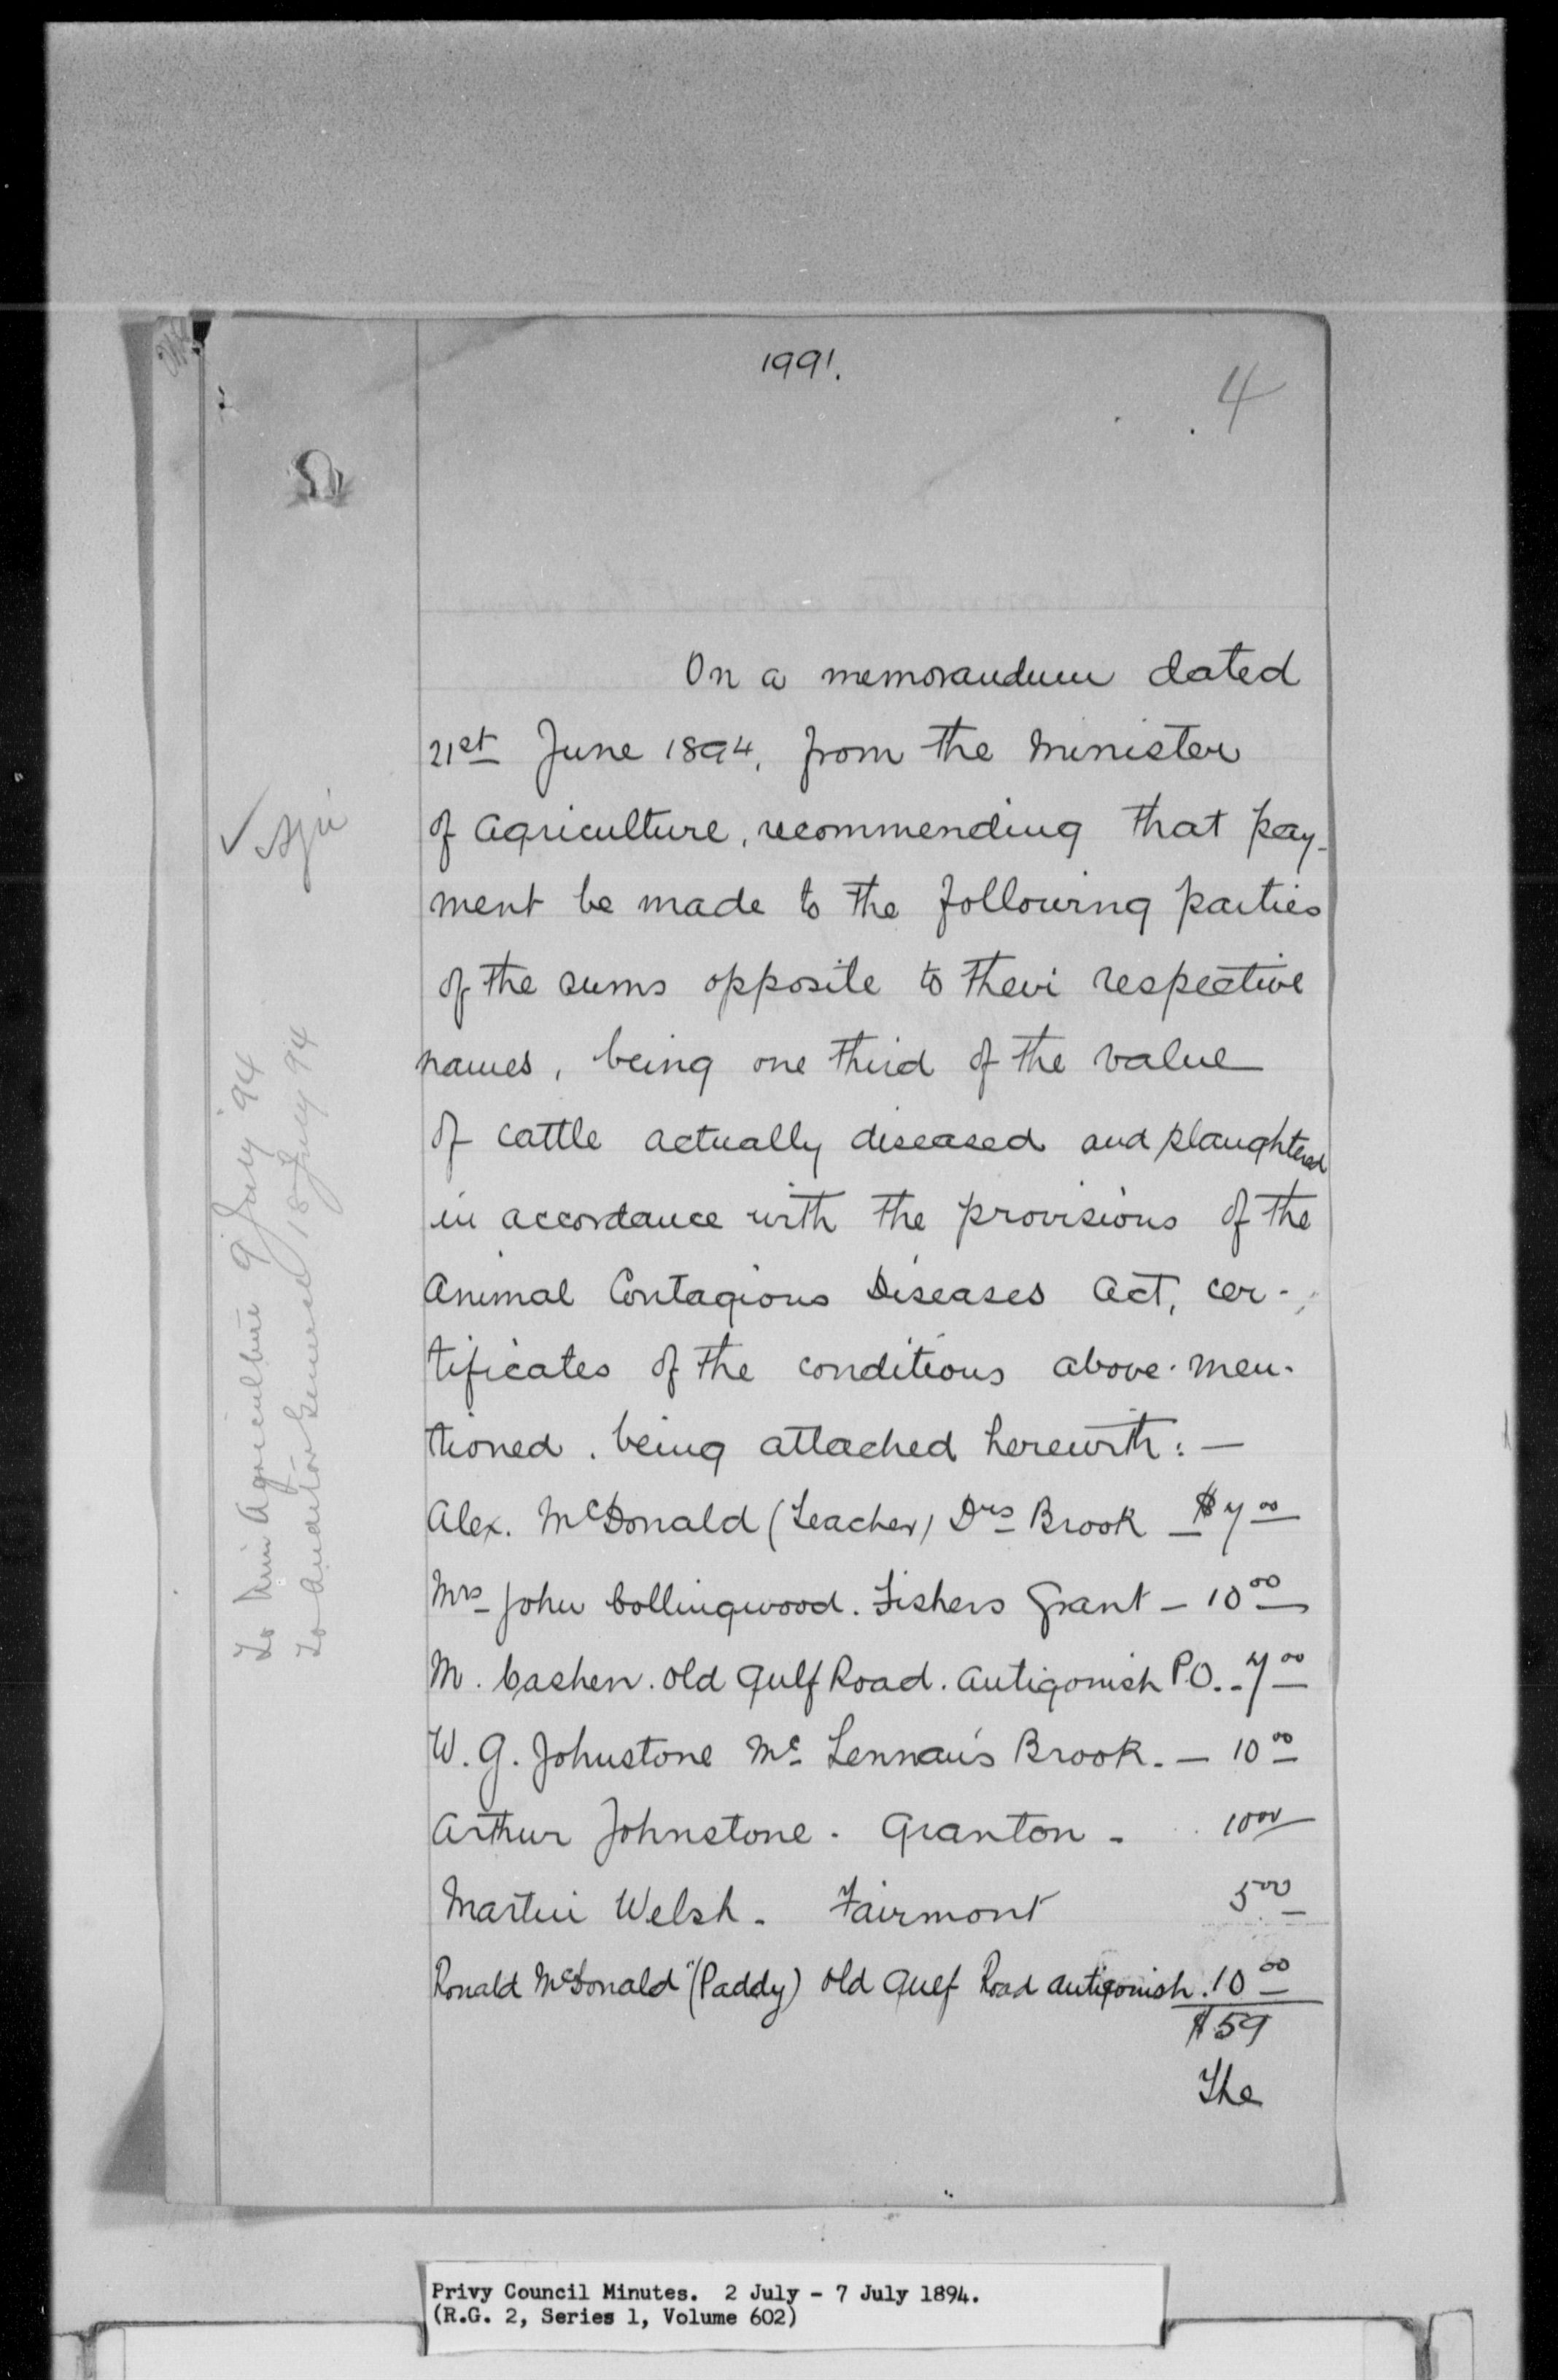 1991.
4
On a memorandum dated
21st June 1894, from the Minister
of Agriculture, recommending that pay-
ment be made to the following parties
of the sums opposite to their respective
names, being one third of the value
of cattle actually diseased and slaughtered
in accordance with the provisions of the
Animal Contagious Diseases Act, cer-
tificates of the conditions above-men-
tioned, being attached herewith:—
Alex. McDonald (Teacher) Drs Brook — $7 00
Mrs John Collingwood. Fishers Grant — 10 00
M. Cashen. Old Gulf Road. Antigonish P.O. - 7 00
W. G. Johnstone Mc Lennan's Brook. — 10 00
Arthur Johnstone. Granton - 10 00
Martin Welsh. Fairmont 5 00
Ronald McDonald "(Paddy) Old Gulf Road Antigonish. 10 00
$59
The
✓ Agri
To Min Agriculture 9 July '94
To Auditor General 18 July 94
Privy Council Minutes. 2 July - 7 July 1894.
(R.G. 2, Series 1, Volume 602)